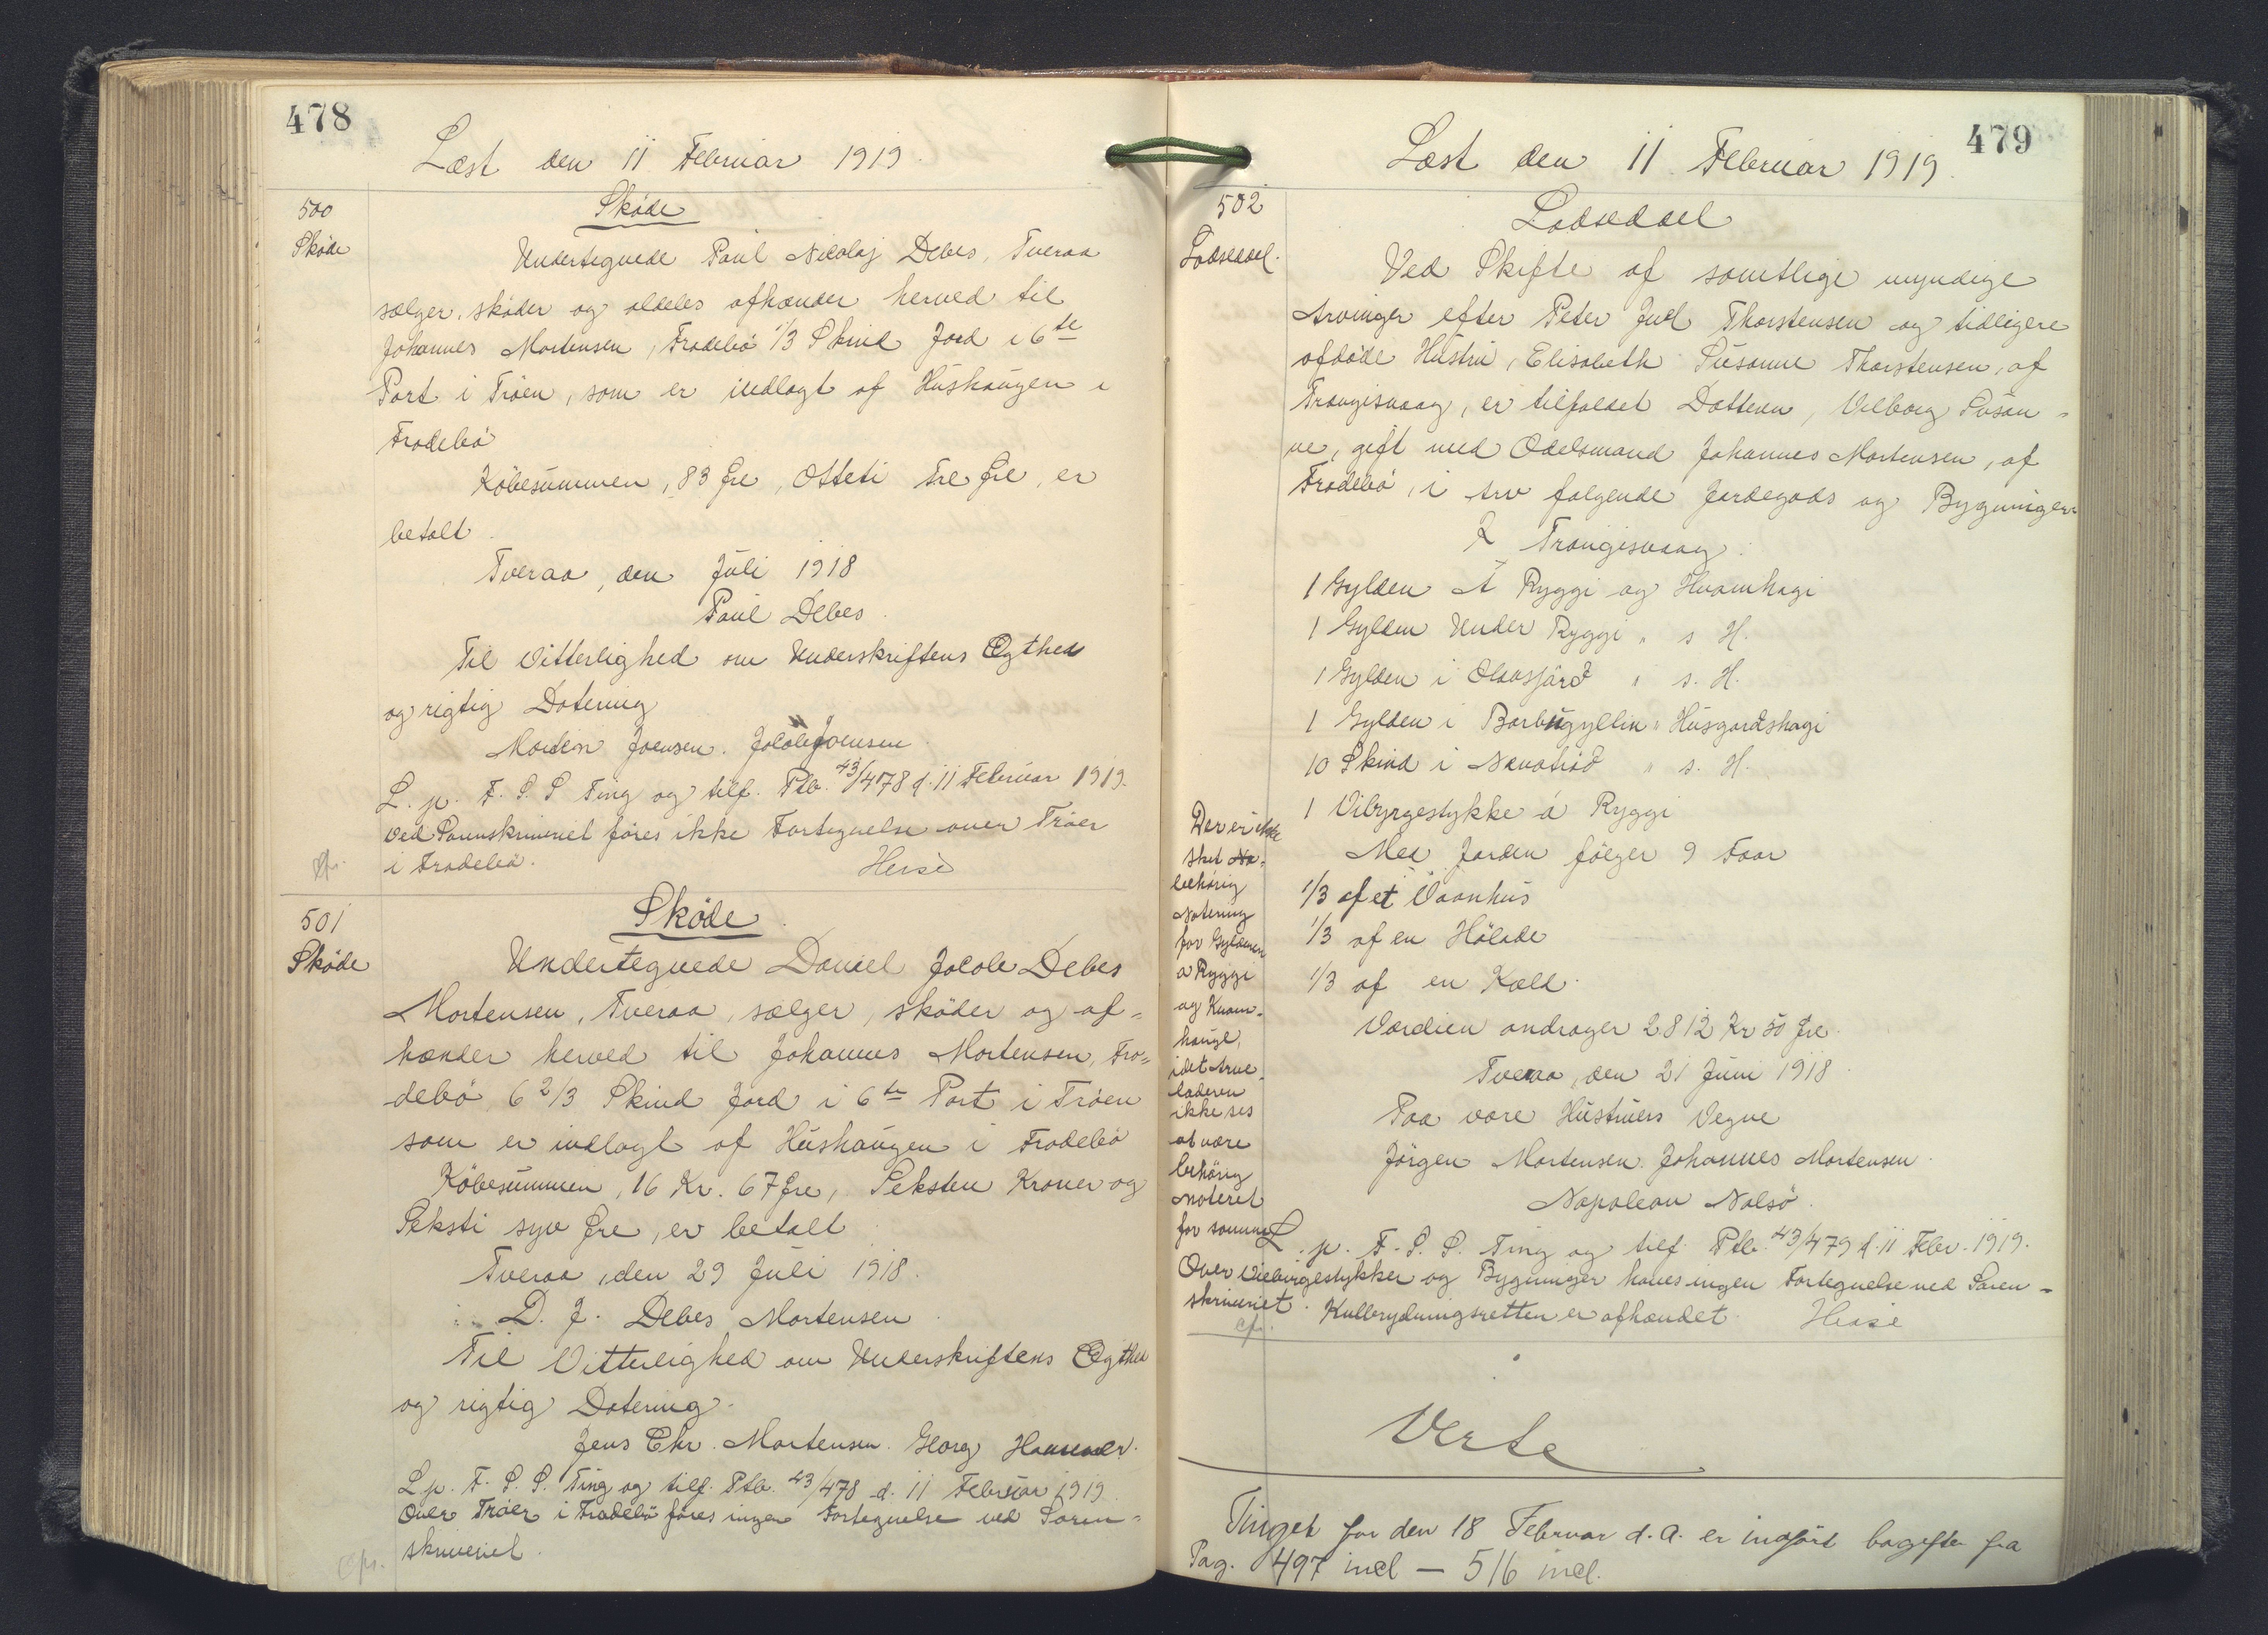 478
Læst den 11 Februar 1919.
500
Sköde
Sköde
Undertegnede Poul Nicolaj Debes, Tveraa
sælger, sköder og aldeles afhænder herved til
Johannes Mortensen, Frodebö 1/3 Skind Jord i 6te
Part i Tröen, som er indlagt af Hushaugen i
Frodebö
Köbesummen, 83 Øre, Otteti tre Øre, er
betalt.
Tveraa, den Juli 1918
Poul Debes.
Til Vitterlighed om Underskriftens Ægthed
og rigtig Datering
Morten Joensen. Jakob Joensen.
L. p. F. S. S Ting og tilf. Ptb. 43/478 d. 11 Februar 1919.
Ved Sorenskriveriet föres ikke Fortegnelse over Tröer
i Frodebö.
Heise
501
Sköde
Sköde.
Undertegnede Daniel Jacob Debes
Mortensen, Tveraa, sælger, sköder og af-
hænder herved til Johannes Mortensen, Fro-
debö, 6 2/3 Skind Jord i 6te Part i Tröen
som er indlagt af Hushaugen i Frodebö
Köbesummen, 16 Kr. 67 Øre, Seksten Kroner og
Seksti syv Øre, er betalt
Tveraa, den 29 Juli 1918.
D. J. Debes Mortensen
Til Vitterlighed om Underskriftens Ægthed
og rigtig Datering.
Jens Chr. Mortensen. Georg
L. p. F. S. S. Ting og tilf. Ptb. 43/478 d. 11 Februar 1919.
Over Tröer i Frodebö föres ingen Fortegnelse ved Soren-
skriveriet.
479
Læst den 11. Februar 1919.
502
Lodseddel.
Lodseddel
Ved Skifte af samtlige myndige
Arvinger efter Peter Juel Thorstensen og tidligere
afdöde Hustru, Elisabeth Susanne Thorstensen, af
Trangisvaag, er tilfaldet Datteren, Vilborg Susan-
ne, gift med Odelsmand Johannes Mortensen, af
Frodebö, i Arv følgende Jordegods og Bygninger
I Trangisvaag.
1 Gylden Á Ryggi og Hvamhagi
1 Gylden Under Ryggi " s H.
1 Gylden i Olavsjörd " s. H.
1 Gylden i Barbugyllin " Husgardshagi
10 Skind i " s. H.
1 Vibyrgestykke á Ryggi
Med Jorden fölger 9 Faar
1/3 af et Vaanhus
1/3 af en Hölade
1/3 af en Kold.
Værdien andrager 2812 Kr 50 Øre.
Tveraa, den 21 Juni 1918.
Paa vore Hustruers Vegne
Jörgen Mortensen. Johannes Mortensen.
Napoleon Nolsö.
Der er ikke
sket No-
behörig
Notering
for Gylden
a Ryggi
og Kvam-
hauge,
idet Arve-
laderen
ikke ses
at være
behörig
noteret
for samme
L. p. F. S. S. Ting og tilf. Ptb. 43/479 d. 11 Febr. 1919.
Over Viebirgestykker og Bygninger haves ingen Fortegnelse ved Soren-
skriveriet. Kulbrydningsretten er afhændet. Heise
cf.
Verte
Tinget for den 18 Februar d. A. er indfört bagefter fra
Pag. 497 incl — 516 incl.